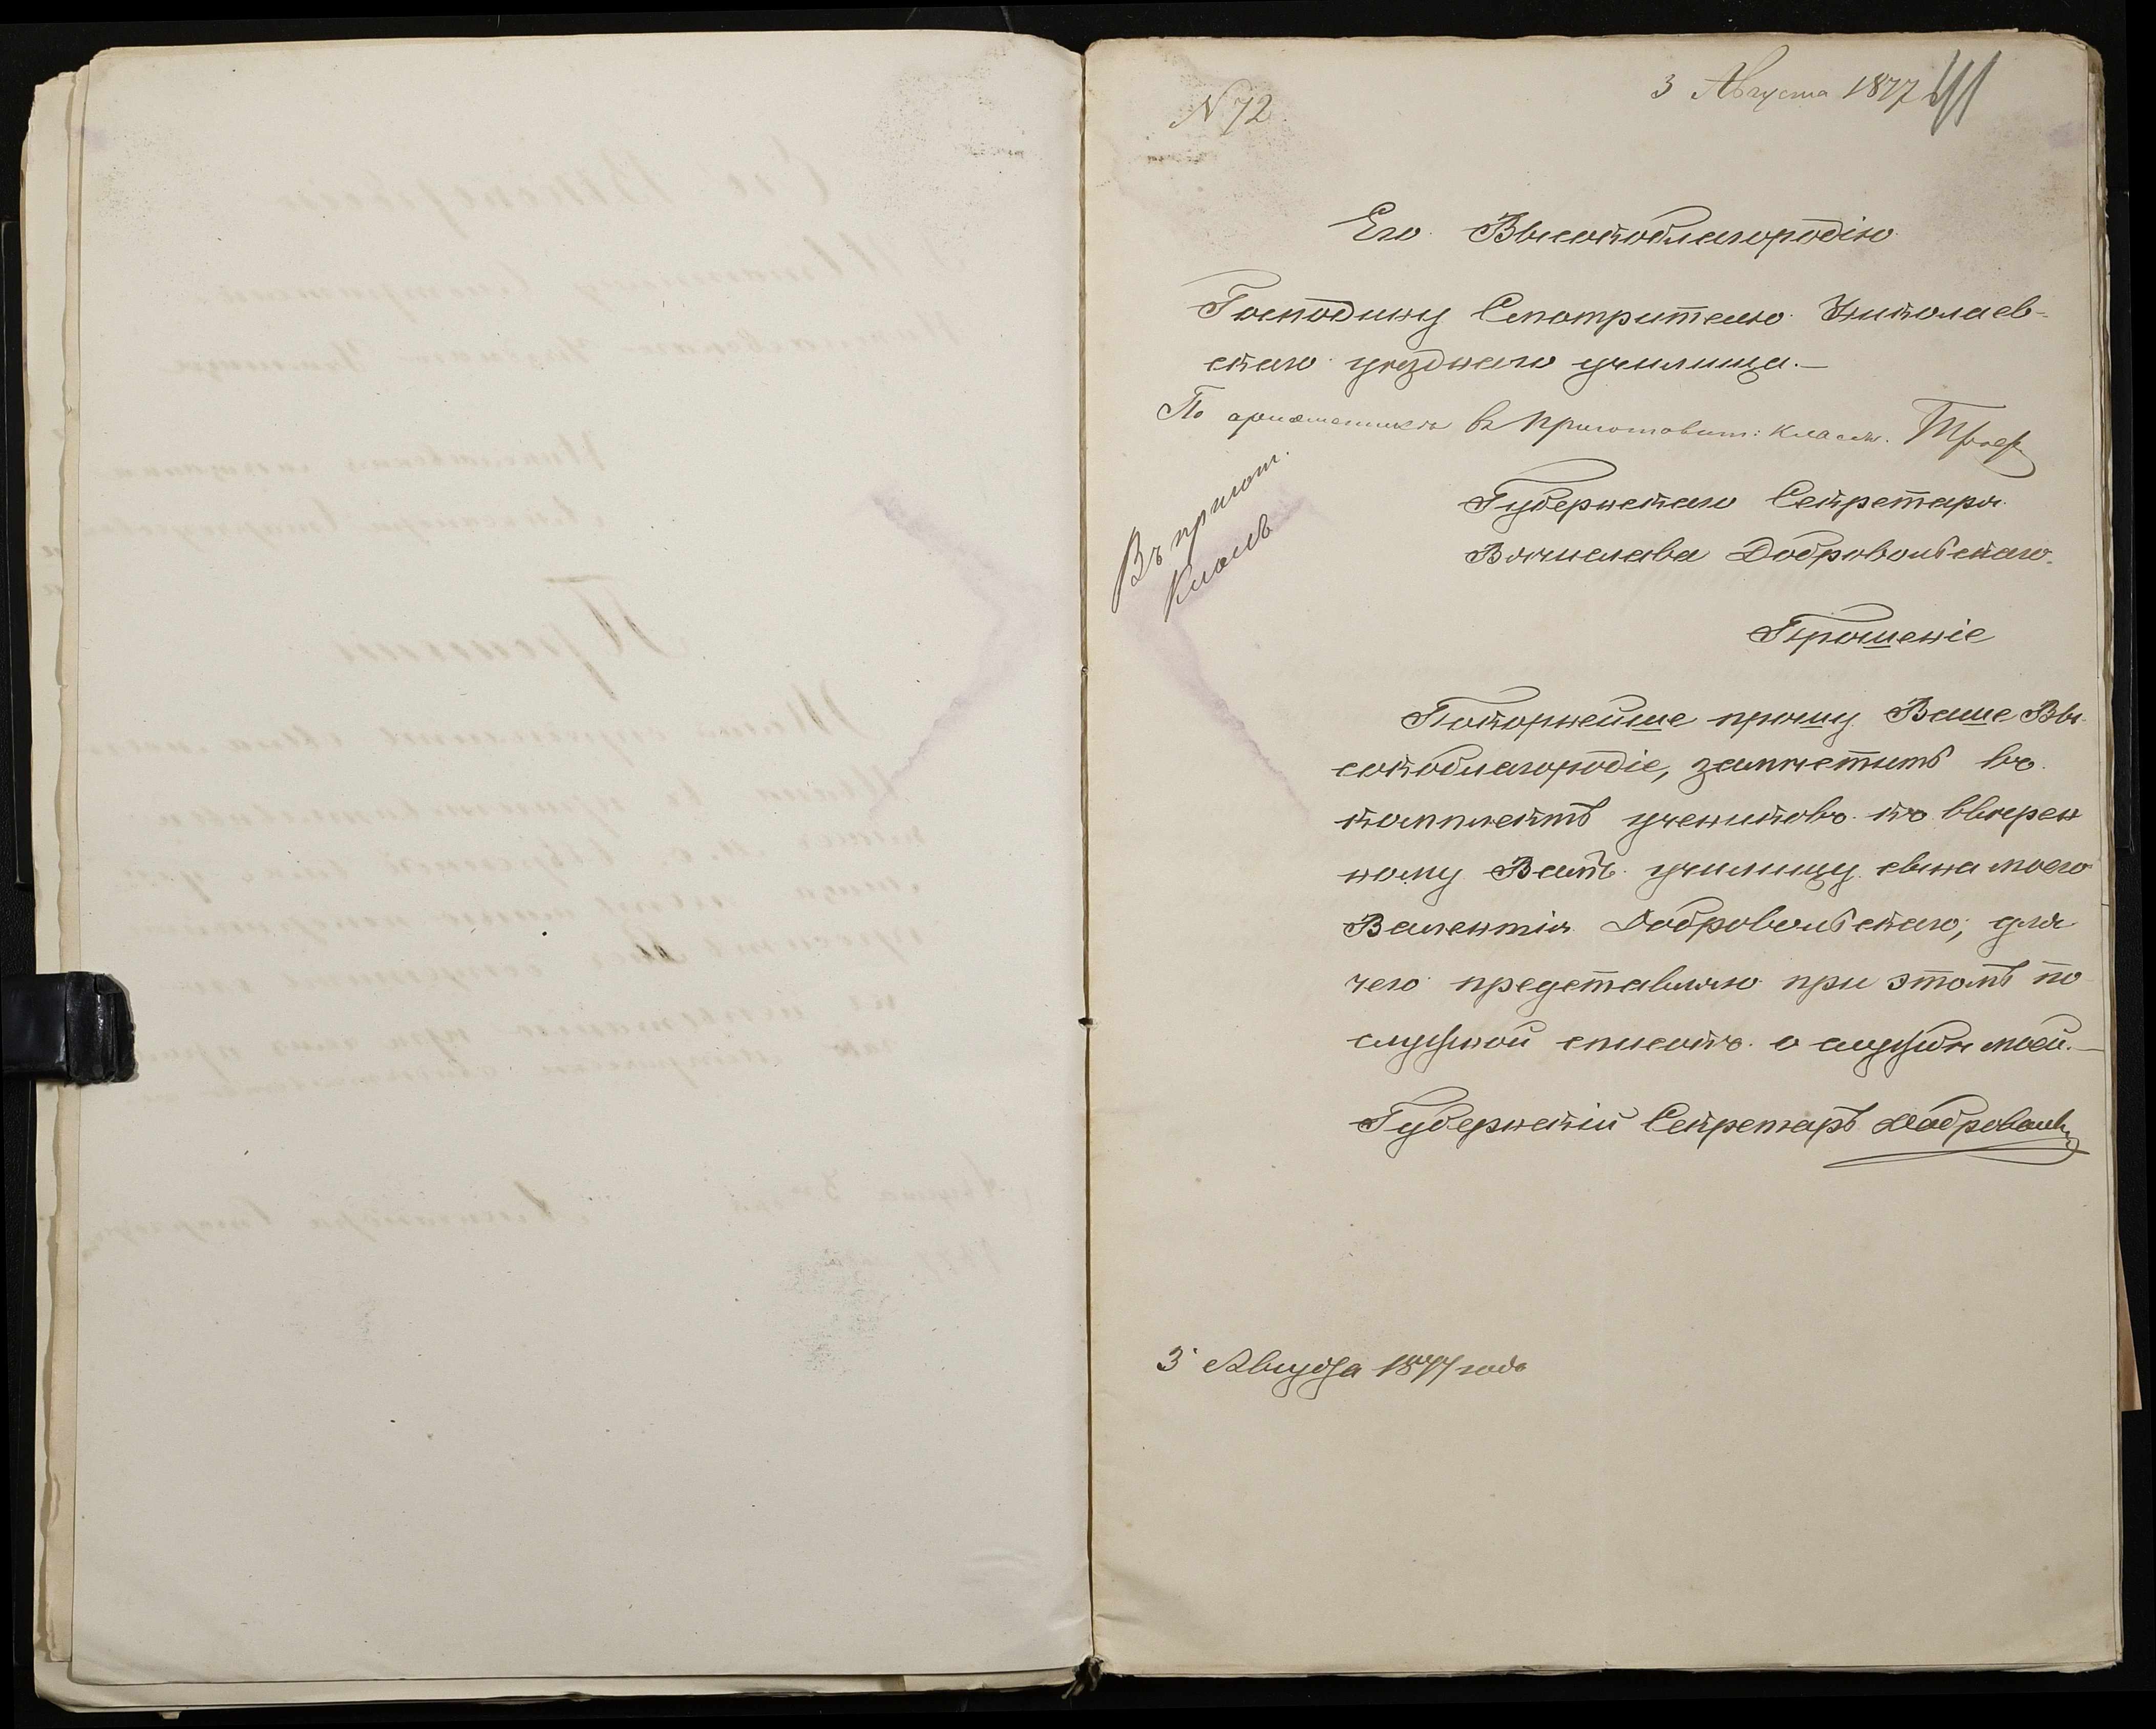 N 72.
3 Августа 1877
Его Высокоблагородію
Господину Смотрителю Николаев-
скаго уѣзднаго училища.—
По ариѳметикѣ въ приготовит: классъ.
Въ пригот.
Классъ
Губернскаго Секретаря
Вячислава Добровольскаго.
Прошеніе
Покорнейше прошу Ваше Вы-
сокоблагородіе, зачислить въ
комплектъ учениковъ къ ввѣрен
ному Вамъ училищу сына моего
Валентія Добровольскаго, для
чего представляю при этомъ по
служной списокъ о службѣ моей.—
Губернскій Секретарь Добровольск
3 Августа 1877 года